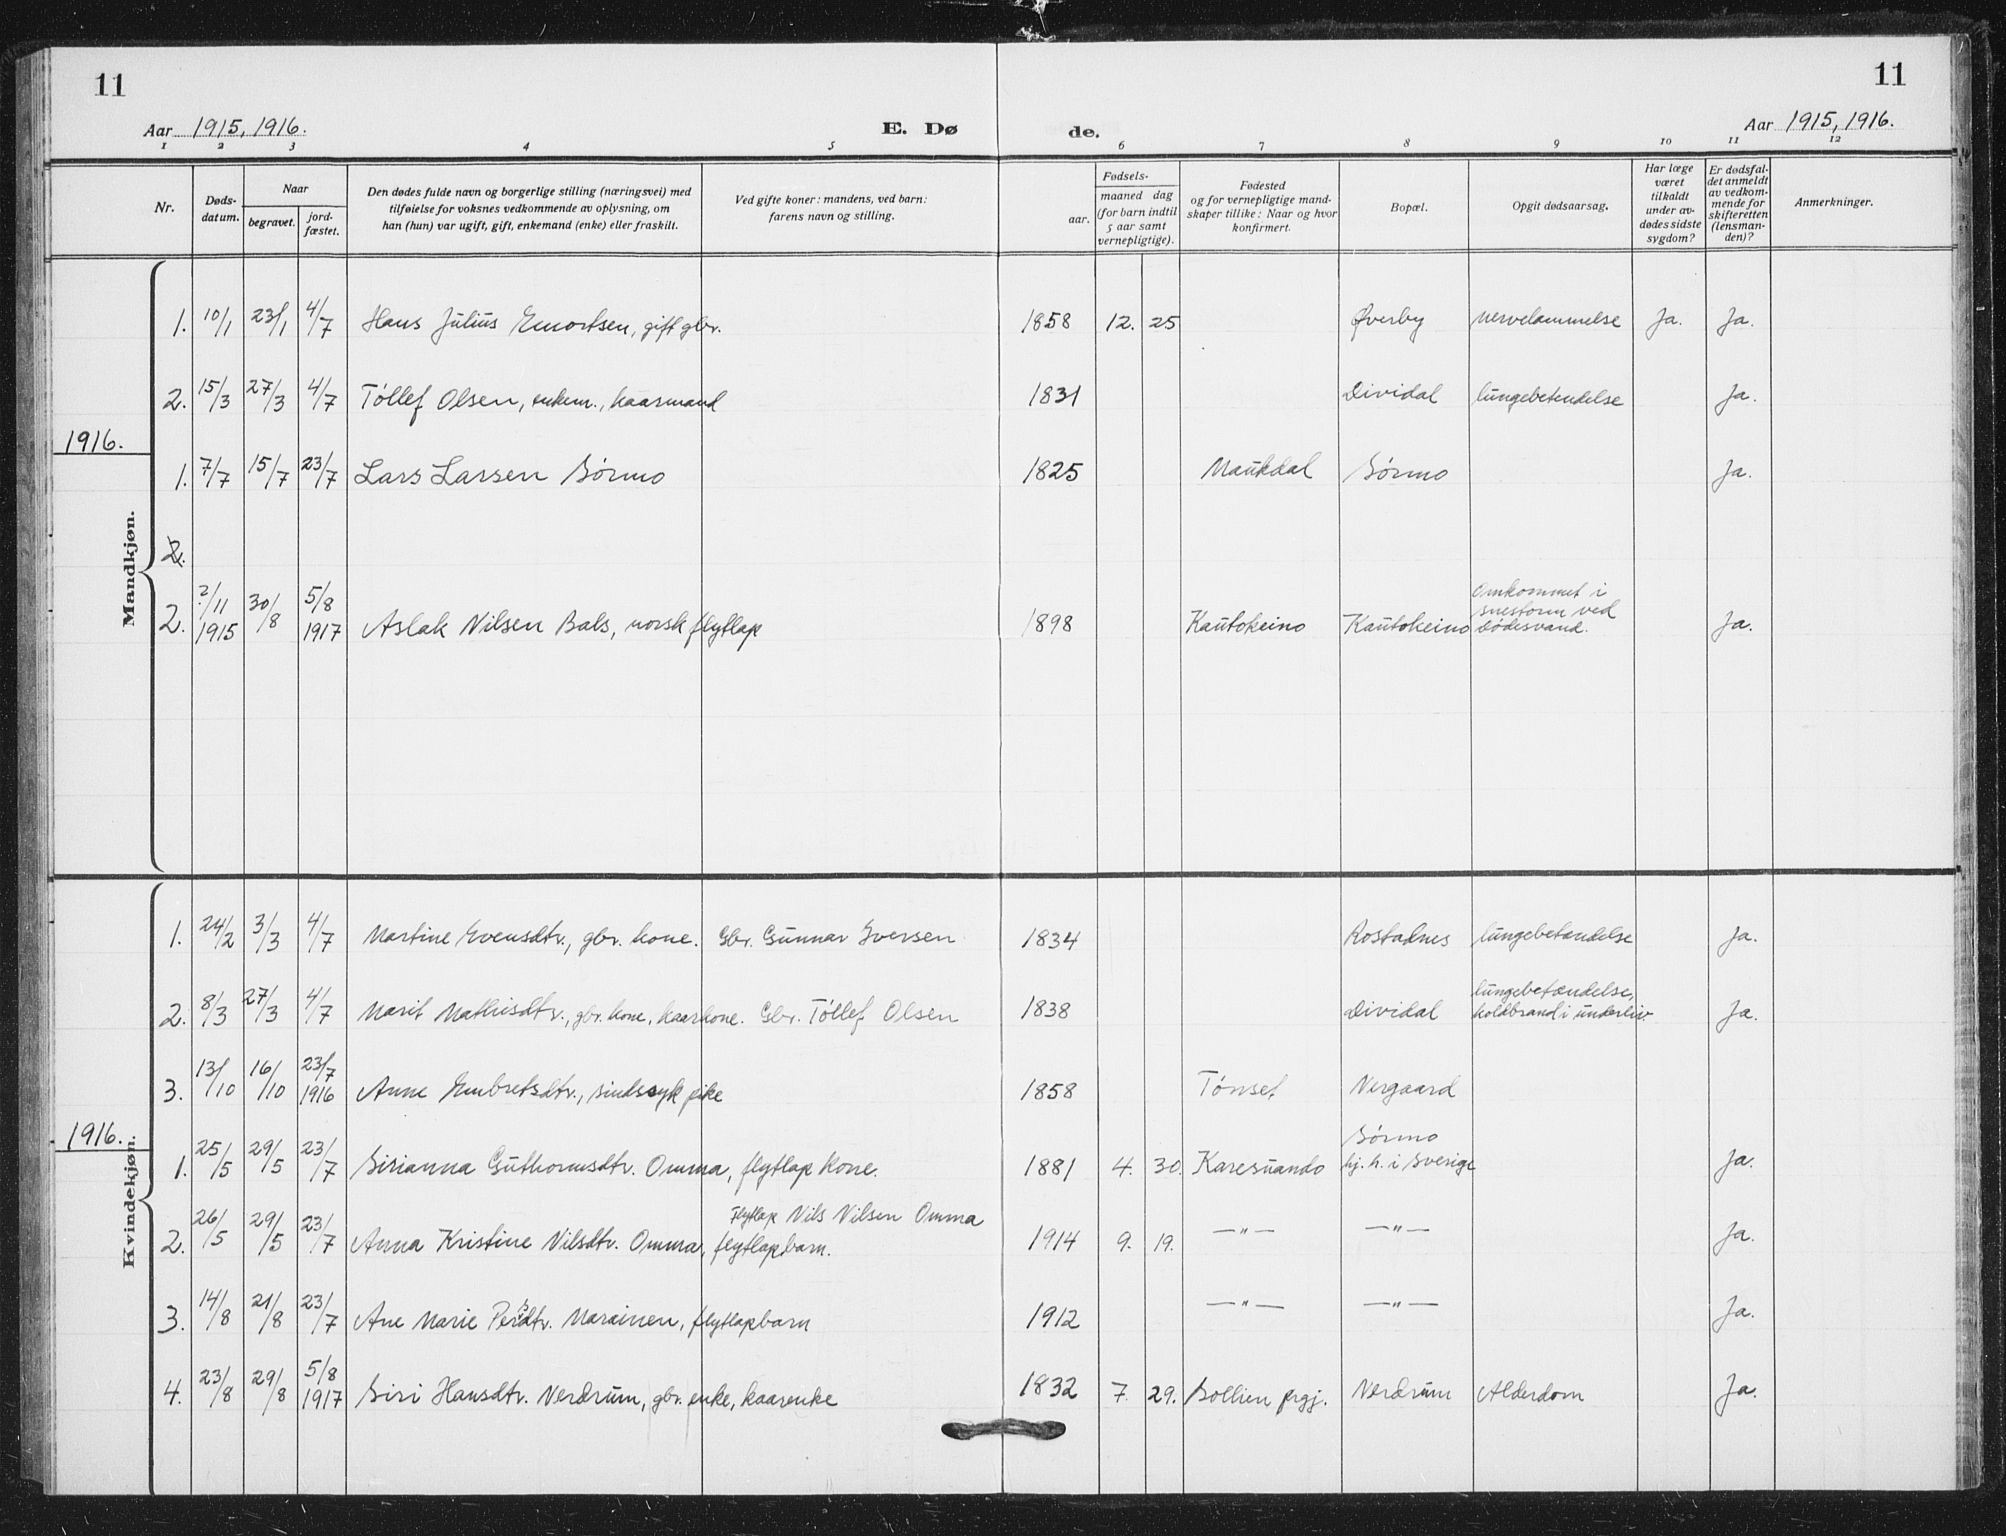 11
11
Aar 1915, 1916.
E. Dø
de.
Aar 1915, 1916.
1 2 3 4 5 6 7 8 9 10 11 12
Nr.
Døds-
datum.
Naar
begravet.
jord-
fæstet.
Den dødes fulde navn og borgerlige stilling (næringsvei) med
tilføielse for voksnes vedkommende av oplysning, om
han (hun) var ugift, gift, enkemand (enke) eller fraskilt.
Ved gifte koner: mandens, ved barn:
farens navn og stilling.
Fødsels-
aar.
maaned dag
(for barn indtil
5 aar samt
vernepligtige).
Fødested
og for vernepligtige mand-
skaper tillike: Naar og hvor
konfirmert.
Bopæl.
Opgit dødsaarsag.
Har læge
været
tilkaldt
under av-
dødes sidste
sygdom?
Er dødsfal-
det anmeldt
av vedkom-
mende for
skifteretten
(lensman-
den)?
Anmerkninger.
Mandkjøn.
1. 10/1 23/1 4/7 Hans Julius Emortsen, gift gbr. 1858 12. 25 Øverby nervelammelse Ja. Ja.
2. 15/3 27/3 4/7 Tóllef Olsen, enkem., kaarmand 1831 Dividal lungebetendelse Ja.
1916.
1. 7/7 15/7 23/7 Lars Larsen Sórmo 1825 Maukdal Sórmo Ja.
2.
2. ?/11 1915 30/8 5/8 1917 Aslak Nilsen Bals, norsk flytlap 1898 Kautokeino Kautokeino Omkommet i
snestorm ved
bødesvand. Ja.
Kvindekjøn.
1. 24/2 3/3 4/7 Martine Evensdtr., gbr. kone. Gbr. Gunnar Iversen 1834 Rostadnes lungebetændelse Ja.
2. 8/3 27/3 4/7 Marit Mathisdtr., gbr. kone, kaarkone. Gbr. Tóllef Olsen 1838 Dividal lungebetændelse,
koldbrand i underliv Ja.
3. 13/10 16/10 23/7 1916 Anne Embretsdtr., sindssyk pike 1858 Tónset Nergaard
1916.
1. 25/5 29/5 23/7 Sirianna Guthormsdtr. Omma, flytlap kone. 1881 4. 30. Karesuando Sórmo
hj. h. i Sverige Ja.
2. 26/5 29/5 23/7 Anna Kristine Nilsdtr. Omma, flytlapbarn. Flytlap Nils Nilsen Omma 1914 9. 19. —"— —"— Ja.
3. 14/8 21/8 23/7 Ane Marie Persdtr. Marainen, flytlapbarn 1912 —"— —"— Ja.
4. 23/8 29/8 5/8 1917 Siri Hansdtr. Nerdrum, gbr. enke, kaarenke 1832 7. 29. Sollien prgj. Nerdrum Alderdom Ja.